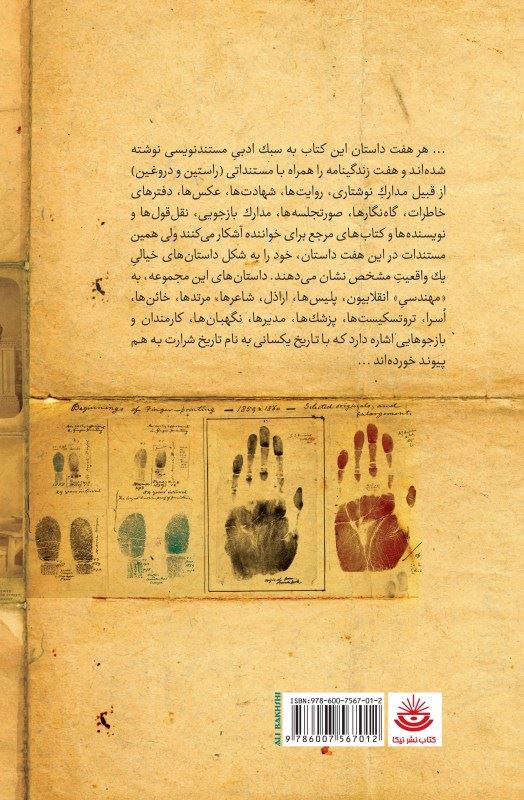 ... هر هفت داستان این کتاب به سبك ادبيِ مستندنویسی نوشته
شده‌اند و هفت زندگینامه را همراه با مستنداتی (راستین و دروغین)
از قبیل مداركِ نوشتاری، روایت‌ها، شهادت‌ها، عکس‌ها، دفترهای
خاطرات، گاه‌نگارها، صورتجلسه‌ها، مدارك بازجویی، نقل‌قول‌ها و
نویسنده‌ها و کتاب‌های مرجع برای خواننده آشکار می‌کنند ولی همین
مستندات در این هفت داستان، خود را به شکل داستان‌های خیاليِ
یك واقعیتِ مشخص نشان می‌دهند. داستان‌های این مجموعه، به
«مهندسيِ» انقلابیون، پلیس‌ها، اراذل، شاعرها، مرتدها، خائن‌ها،
اُسرا، تروتسکیست‌ها، پزشك‌ها، مدیرها، نگهبان‌ها، کارمندان و
بازجوهایی اشاره دارد که با تاریخ یکسانی به نام تاریخ شرارت به هم
پیوند خورده‌اند ...
Beginnings of Finger-printing — 1859 & 1860 — Selected originals, and
enlargements
ALI BAKHSHI
ISBN: 978-600-7567-01-2
9 786007 567012
کتاب نشر نیکا